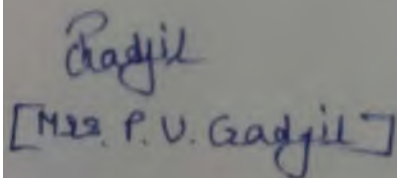 Gadgil
[Mrs. P. V. Gadgil]